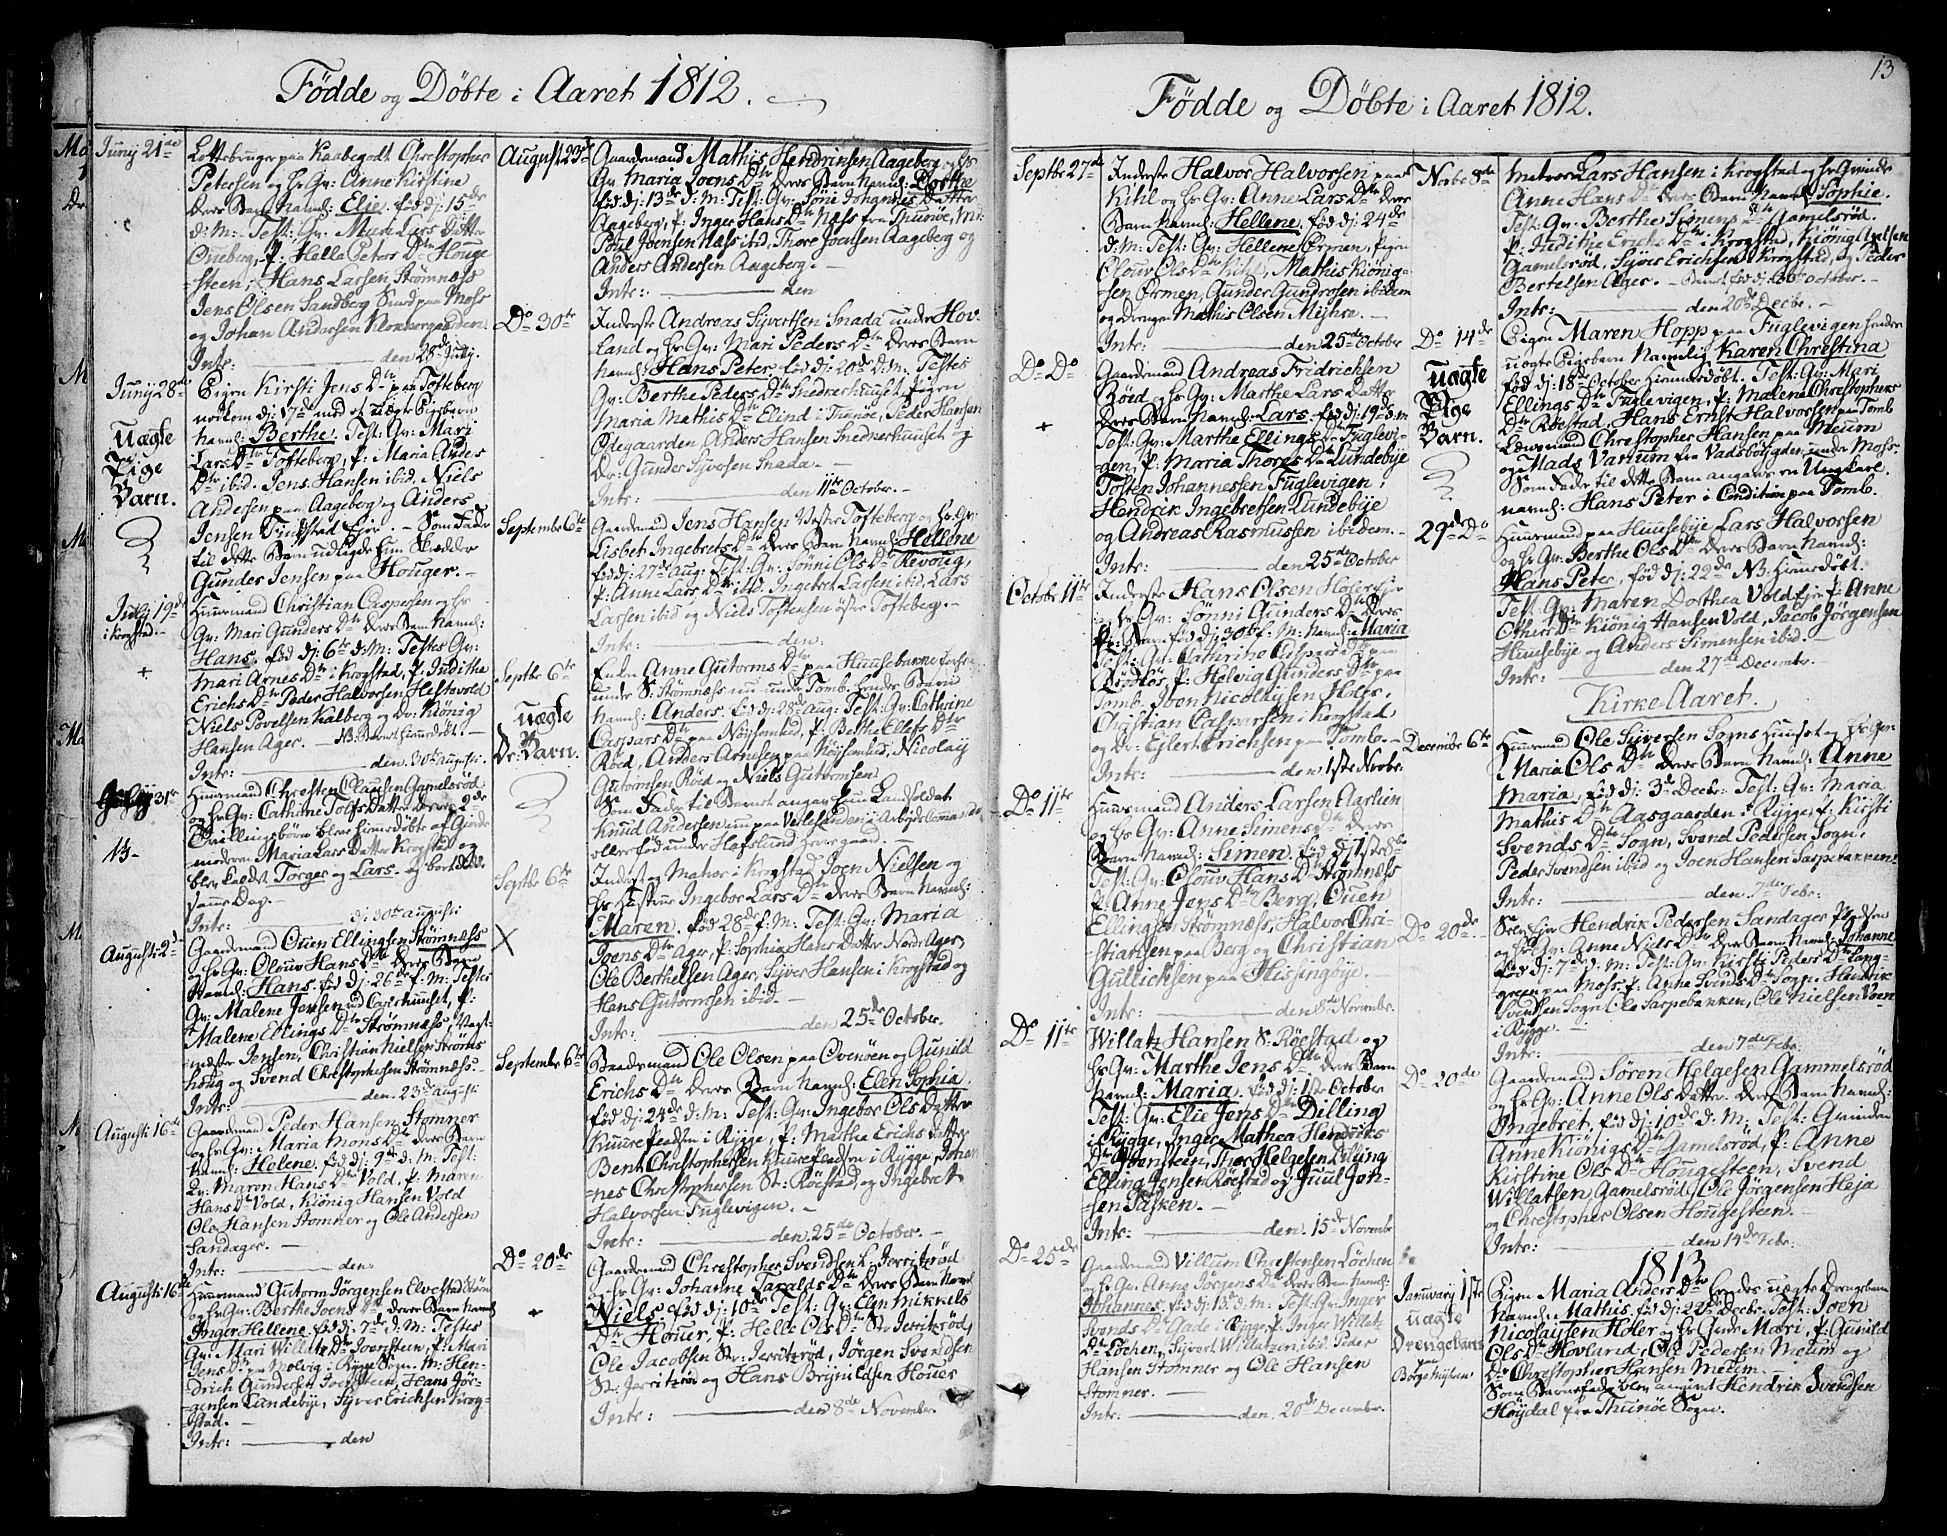 Födde og Döbte i Aaret 1812.
Juny 21de
Petersen og hs Gv: Anne Kirstine
deres Barn Navnl: Elie. fød dj: 15de
d: M: Test: Gv: Mare Lars Datter
Oueberg, P: Helle Peters Dtr Houge
steen, Hans Larsen Strømnæss
Jens Olsen Sandberg Smed paa Moss
og Johan Andersen
Intr: den 28de July.
Juny 28de
uægte
Pige
Barn.
Pigen Kirsti Jens Dtr paa Tofteberg
nedkom dj: 17de med et uægte Pigebarn
Navnl: Berthe. Test: Gv: Mari
Lars Dtr Tofteberg, P: Maria Anders
Dtr ibid. Jens Hansen ibid, Niels
Andersen paa Aageberg og Anders
Jensen Eje. Som Fader
til dette Barn udlagde hun Skrædder
Gunder Jensen paa Houger.
July 19de
i Krogstad
Huusmand Christian Caspersen og hs
Gv: Mari Gunders Dtr deres Barn Navnl:
Hans. fød dj: 6te d: M: Testes Gv:
Mari Arnes Dtr i Krogstad, P: Juditha
Erichs Dtr Peder Halvorsen Hestevold
Niels Povelsen Kalberg og Dr: Kiönig
Hansen Ager. NB: Barnet hiemedøbt.
Intr: den 30te Augusti.
31te
Huusmand Christen Clausen Gamelsröd
og hs Gv: Cathrine Tolfs Datter deres 2de
Tvillingsbørn bleve hiemedøbte af Giorde
moderen Maria Lars Datter Krogstad og
blev kaldet Torger og Lars. og bortdøde
samme Dag.
Intr: dj: 30te Augusti
Augusti 2de
Gaardemand Ouen Ellingsen Strömnæss
og hs Gv: Olouv Hans Dtr deres Barn
Navnl: Hans. fød dj: 26de f: M: Testes
Gv: Malene Jensen
Malene Ellings Dtr Strömnæss,
Jensen, Christian Nielsen Ströms
houg og Svend Christophersen Strömnæss.
Intr: den 23de Augusti
Augusti 16de
Gaardemand Peder Hansen Stomner
og hs Gv: Maria Mons Dtr deres Barn
Navnl: Helene. fød dj: 9de d: M: Test:
Qv: Maren Hans Dtr Vold, P: Maren
Hans Dtr Vold, Kiönig Hansen Vold
Ole Hansen Stomner og Ole Andersen
Sandager.
Intr: den
Augusti 16de
Huusmand Gutorm Jörgensen Elvestad
og hs Gv: Berthe Joens Dtr deres Barn Navnl:
Inger Hellene. fød dj: 7de d: M: Testes
Gv: Mari Willatz Dtr Joensteen, P: Mari
Jens Dtr paa Molvig i Rygge Sogn. M: Hen-
drich Gundersen Joensteen, Hans Jör-
gensen Lundebye, Syver Erichsen Krog-
stad.
Intr: den
August 23de
Gaardemand Mathis Hendrichsen Aageberg og hs
Gv: Maria Joens Dtr deres Barn Navnl: Berthe
fød dj: 13de d: M: Test: Gv: Johannes Datter
Aageberg, P: Inger Hans Dtr Næss fra Thunöe,
Poul Joensen Næss ibid, Thore Joensen Aageberg og
Anders Andersen Aageberg.
Intr: den
Do 30te
Inderste Andreas Syvertsen Snada under Hov-
land og hs Gv: Mari Peders Dtr deres Barn
Navnl: Hans Peter. fød dj: 20de d: M: Testes
Gv: Berthe Peders Dtr Snedkerhuuset, Pigen
Maria Mathis Dtr Elind i Thunöe, Peder Hansen
Ödegaarden, Anders Hansen Snedkerhuuset og
Dr: Gunder Syversen Snada.
Intr: den 11te October.
Septembe 6te
Gaardemand Jens Hansen Vester Tofteberg og hs Gv:
Lisbet Ingebrets Dtr deres Barn Navnl: Hellene
fød dj: 27de Aug: Test: Gv: Jonni Ols Dtr Revoug,
P: Anne Lars Dtr ibid. Ingebret Larsen ibid, Lars
Larsen ibid og Niels Tostensen öster Tofteberg.
Intr: den.
Septbr 6te
uægte
Dr: Barn.
Enken Anne Gutorms Dtr paa Huusebanne
under S: Strömnæss nu under Tomb. hendes Barn
Navnl: Anders. fød dj: 28de Aug: Test: Gv: Cathrine
Caspars Dtr paa, P: Berthe Ellefs Dtr
Röed, Anders Arnesen paa, Nicolay
Gutormsen Röd og Niels Gutormsen
Som Fader til Barnet angav hun Landsoldat
Knud Andersen nu paa i Arbeyds
eller fød under Hafslund
Septbr 6te
Inderst og Mator i Krogstad Joen Nielsen og
hs Hustrue Ingebor Lars Dtr deres Barn Navnl:
Maren. fød 28de f: M: Test: Gv: Maria
Joens Dtr Ager, P: Sophia Hans Datter Nordr Ager,
Ole Berthelsen Ager, Syver Hansen i Krogstad og
Hans Gutormsen ibid.
Intr: den 25de October.
September 6te
Baadsmand Ole Olsen paa Ovenöen og Gunild
Erichs Dtr deres Barn Navnl: Elen Sophia.
fød dj: 24de d: M: Test: Gv: Ingebor Ols Datter
i Rygge, P: Marthe Erichs Datter
Bent Christophersen i Rygge, Johan-
nes Christophersen St: Röestad, og Ingebret
Halvorsen Fuglevigen.
Intr: den 25de October.
Do 20de
Gaardemand Christopher Svendsen L: Jerritzröd
og hs Gv: Johanne Taralds Dtr deres Barn Navnl:
Niels. fød dj: 10de Test: Gv: Elen Mikkels
Dtr Houer, P: Helle Ols Dtr St: Jerritzröd,
Ole Jacobsen St: Jerritzröd, Jörgen Svendsen
St: Jerritzröd og Hans Brynildsen Houer
Intr: den 8de November.
Födde og Döbte i Aaret 1812.
13
Septbr 27de
Inderste Halvor Halvorsen paa
Kihl og hs Gv: Anne Lars Dtr deres
Barn Navnl: Hellene. fød dj: 24de
d: M: Test: Gv: Hellene Ormen, Pigen
Olouv Ols Dtr Kihl, Mathis Kiönig-
sen Ormen, Gunder Gundrosen ibidem
og Drengen Mathis Olsen Mijhre.
Intr: den 25de October
Do Do
Gaardemand Andreas Fridrichsen
Röed og hs Gv: Marthe Lars Datter
deres Barn Navnl: Lars. fød dj: 19de S: M
Test: Gv: Marthe Ellings Dtr Fuglevi-
gen, P: Maria Thores Dtr Lundebye
Tosten Johannessen Fuglevigen,
Hendrik Ingebretsen Lundebije
og Andreas Rasmussen ibidem.
Intr: den 25de October
Octobr 11te
Inderste Hans Olsen Holer Eje
og hs Gv: Jönni Gunders Dtr deres
Barn fød dj: 30te f: M: Navnl: Maria
Test: Gv: Cathrine Caspers Dtr paa
Brödlös, P: Helvig Gunders Dtr paa
Tomb. Sven Nicolaysen Holer,
Christian Caspersen i Krogstad
og Dr: Ejlert Erichsen paa Tomb.
Intr: den 1ste Novbr.
Do 11te
Huusmand Anders Larsen Aartien
og hs Gv: Anne Simens Dtr deres
Barn Navnl: Simen. fød dj 1ste
Test: Gv: Olouv Hans Dtr Strömnæss
P: Anne Jens Dtr Berg, Ouen
Ellingsen Strömnæss, Halvor Chri-
stiansen paa Berg og Christian
Gullichsen paa Hissingbye.
Intr: den 8de Novembr.
Do 11te
Willatz Hansen S: Röestad og
hs Gv: Marthe Jens Dtr deres Barn
Navnl: Maria. fød dj: 1ste October
Test: Gv: Elie Jens Dtr Dilling
i Rygge, Inger Mathea Hendriks
Dtr Joensteen, Thor Helgesen Dilling
Elling Jensen Röestad og Juul Jen-
sen Tasken.
Intr: den. 15de Novembr
Do 25de
Gaardemand Villum Chrestensen Löchen
og hs Gv: Anne Jörgens Dtr deres Barn Navnl:
Johannes. fød dj: 15de d: M: Test: Gv: Inger
Svends Dtr Gade i Rygge, P: Inger Willatz
Dtr Löchen, Syvert Willatzen ibid. Peder
Hansen Stomner og Ole Hansen
Stomner.
Intr: den. 20de Decembr.
Novbr 8de
Mator Lars Hansen i Krogstad og hs Qvinde
Anne Hans Dtr deres Barn Navnl: Sophie.
Test: Gv: Berthe Simens Dtr Gamelsröd.
P: Juditha Erichs Dtr i Krogstad, Kiönig Axelsen
Gamelsröd, Syver Erichsen Krogstad, og Peder
Bertelsen Ager. Barnet fød dj: 30te October.
Intr: den 20de Decbr.
Do 14de
uægte
Pige
Barn.
Pigen Maren Hopp paa Fuglevigen hendes
uægte Pigebarn Navnlig Karen Chrestina
fød dj: 18de October hiemmedøbt. Test: Gv: Mari
Ellings Dtr Fuglevigen, P: Malene Christophers
Dtr Röestad, Hans Ernst Halvorsen paa Tomb
Christopher Hansen paa Meum
og Mads Vanum fra Vadsböygden under Moss.
Som Fader til dette Barn angaves en Ungkarl.
navnl: Hans Peter i Condition paa Tomb.
29de Do
Huusmand paa Huusebije Lars Halvorsen
og hs Gv: Berthe Ols Dtr deres Barn Navnl:
Hans Peter, fød dj: 22de NB. hiemedøbt.
Test: Gv: Maren Dorthea Vold Eje, P: Anne
Others Dtr Kiönig Hansen Vold, Jacob Jörgensen
Huusebije og Anders Simensen ibid.
Intr: den 27de Decembr.
Kirke Aaret.
Decembr 6te
Huusmand Ole Siversen Sogns huuset og hs Gv:
Maria Ols Dtr deres Barn Navnl: Anne
Maria, fød dj: 3de Decbr. Test: Gv: Maria
Mathis Dtr Aasgaarden i Rygge, P: Kirsti
Svends Dtr Sogn, Svend Pedersen Sogn,
Peder Svendsen ibid og Joen Hansen Sarpebakken.
Intr: den. 7de Febr.
Do 20de
Selv Ejer Hendrik Pedersen Sandager
og hs Gv: Anne Niels Dtr deres Barn Navnl: Johanne
fød dj: 7de d: M: Test: Gv: Kirsti Peders Dtr Lang-
green paa Moss. P: Anne Svends Dtr Sogn. Hendrik
Svendsen Sogn Ole Sarpebakken, Ole Nielsen Voen
i Rygge.
Intr: den 7de Febr:
Do 20de
Gaardemand Sören Helgesen Gammelsröd
og hs Gv: Anne Ols Datter. deres Barn Navnl:
Ingebret, fød dj: 10de d: M: Test: Qvinden
Anne Kiönigs Dtr Gamelsröd, P: Anne
Kirstine Ols Dtr Hougesteen, Svend
Willatsen Gamelsröd, Ole Jörgensen Heja
og Christopher Olsen Hougesteen.
Intr: den 14de Febr:
1813
January 1ste
uægte
Drengebarn
paa
Pigen Maria Anders Dtr hendes uægte Drengebarn
Navnl: Mathis. fød dj: 22de Decbr. Test: Joen
Nicolaysen Holer og hs Qvinde Mari, P: Gunild
Ols Dtr Hovlund, Ole Pedersen Meum og
Dr Christopher Hansen Meum.
Som Barnefader blev angivet Hendrik Svendsen
Höydal fra Thunöe Sogn.